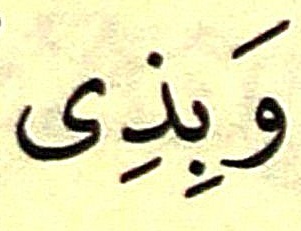 وَبِذِى